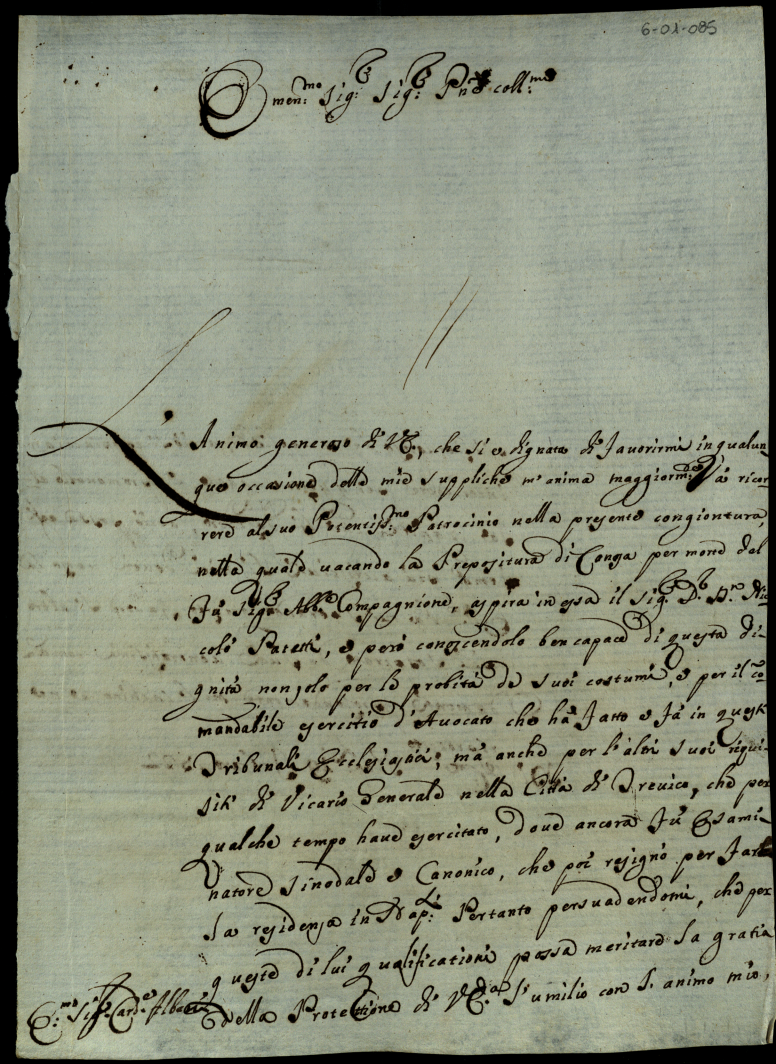 6-01-085
Emin:mo Sig:r Sig:r Pne coll:mo
L'Animo generoso di V.E., che si è dignata di favorirmi in qualun
que occasione delle mie suppliche m'anima maggiorm.te à ricor
rere al suo Potentiss:mo Patrocinio nella presente congiontura,
nella quale vacando la Prepositura di Conza per morte del
fù Sig:r Abb.e Compagnione, aspira in essa il Sig:r D:r D:n Ni-
colò Paratti, e però conoscendolo ben capace di questa di-
gnità non solo per le probità de suoi costumi, e per il co-
mandabile esercitio d'Avocato che hà fatto e fà in questi
Tribunali Ecclesiastici, mà anche per l'altri suoi riqui-
siti di Vicario Generale nella Città di Trevico, che per
qualche tempo have esercitato, dove ancora fù Esami-
natore Sinodale e Canonico, che poi resignò per fare
la residenza in Nap:li Pertanto persuadendomi, che per
queste di lui qualificationi possa meritare la gratia
della Protettione di V.E.za l'umilio con l'animo mio,
E:mo Sig.r Card.e Albani